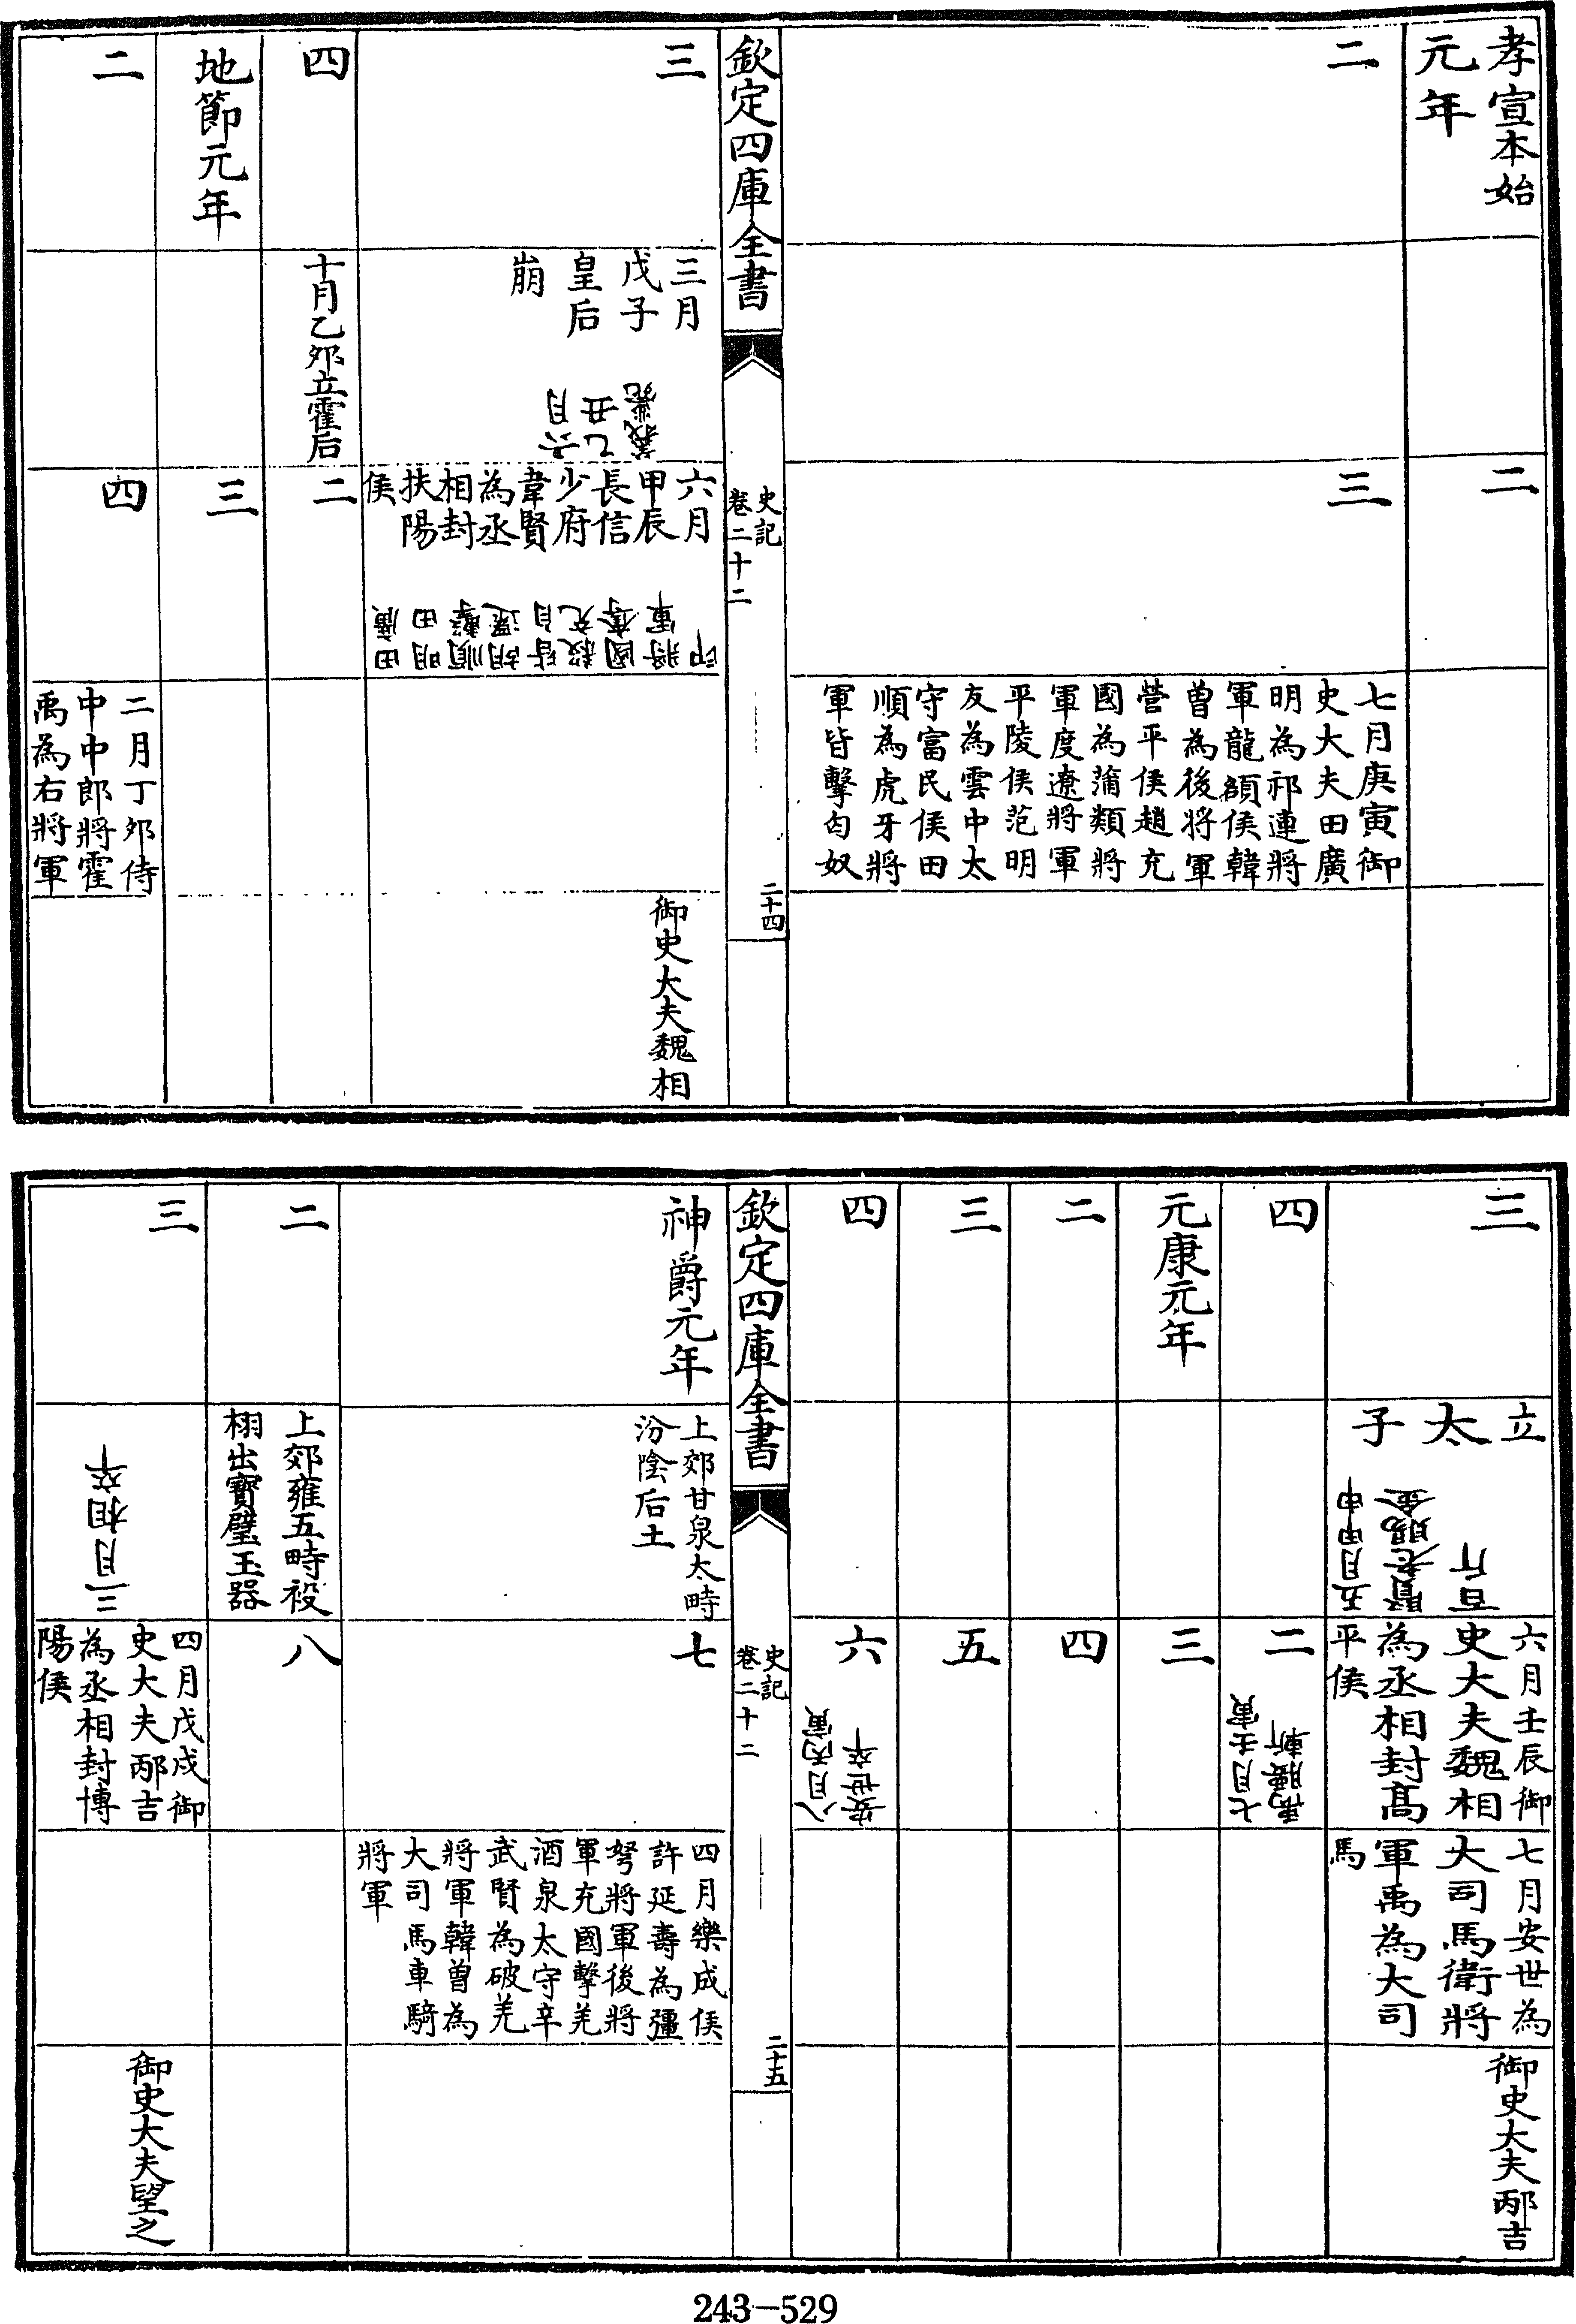 孝宣本始
元年
二
二
三
七月庚寅御
史大夫田廣
明為祁連將
軍龍頟侯韓
曽為後將軍
營平侯趙充
國為蒲類將
軍度遼將軍
平陵侯范明
友為雲中太
守富民侯田
順為虎牙將
軍皆擊匈奴
欽定四庫全書
史記
卷二十二
二十四
三
三月
戊子
皇后
崩
六月
乙丑
義薨
六月
甲辰
長信
少府
韋賢
為丞
相封
扶陽
侯
田廣
明田
順擊
胡還
皆自
殺充
國奪
將軍
印
御史大夫魏相
四
十月乙夘立霍后
二
地節元年
三
二
四
二月丁夘侍
中中郎將霍
禹為右將軍
三
立太子
五月甲申
賢老賜金
百斤
六月壬辰御
史大夫魏相
為丞相封髙
平侯
七月安世為
大司馬衛將
軍禹為大司
馬
御史大夫邴吉
四
二
七月壬寅
禹腰斬
元康元年
三
二
四
三
五
四
六
八月丙寅
安世卒
欽定四庫全書
史記
卷二十二
二十五
神爵元年
上郊甘泉太畤
汾陰后土
七
四月樂成侯
許延壽為彊
弩將軍後將
軍充國擊羌
酒泉太守辛
武賢為破羌
將軍韓曽為
大司馬車騎
將軍
二
上郊雍五畤祋
栩出寳璧玉器
八
三
三月相卒
四月戊戌御
史大夫邴吉
為丞相封博
陽侯
御史大夫望之
243—529